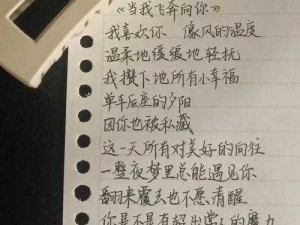 《当我飞奔向你》
我喜欢你 像风的温度
温柔地缓缓地轻扰
我攒下地所有小幸福
单车后座的夕阳
因你也被私藏
这一天所有对美好的向往
一整夜梦里总能遇见你
翻来覆去也不愿清醒
你是不是有超出常人的魔力